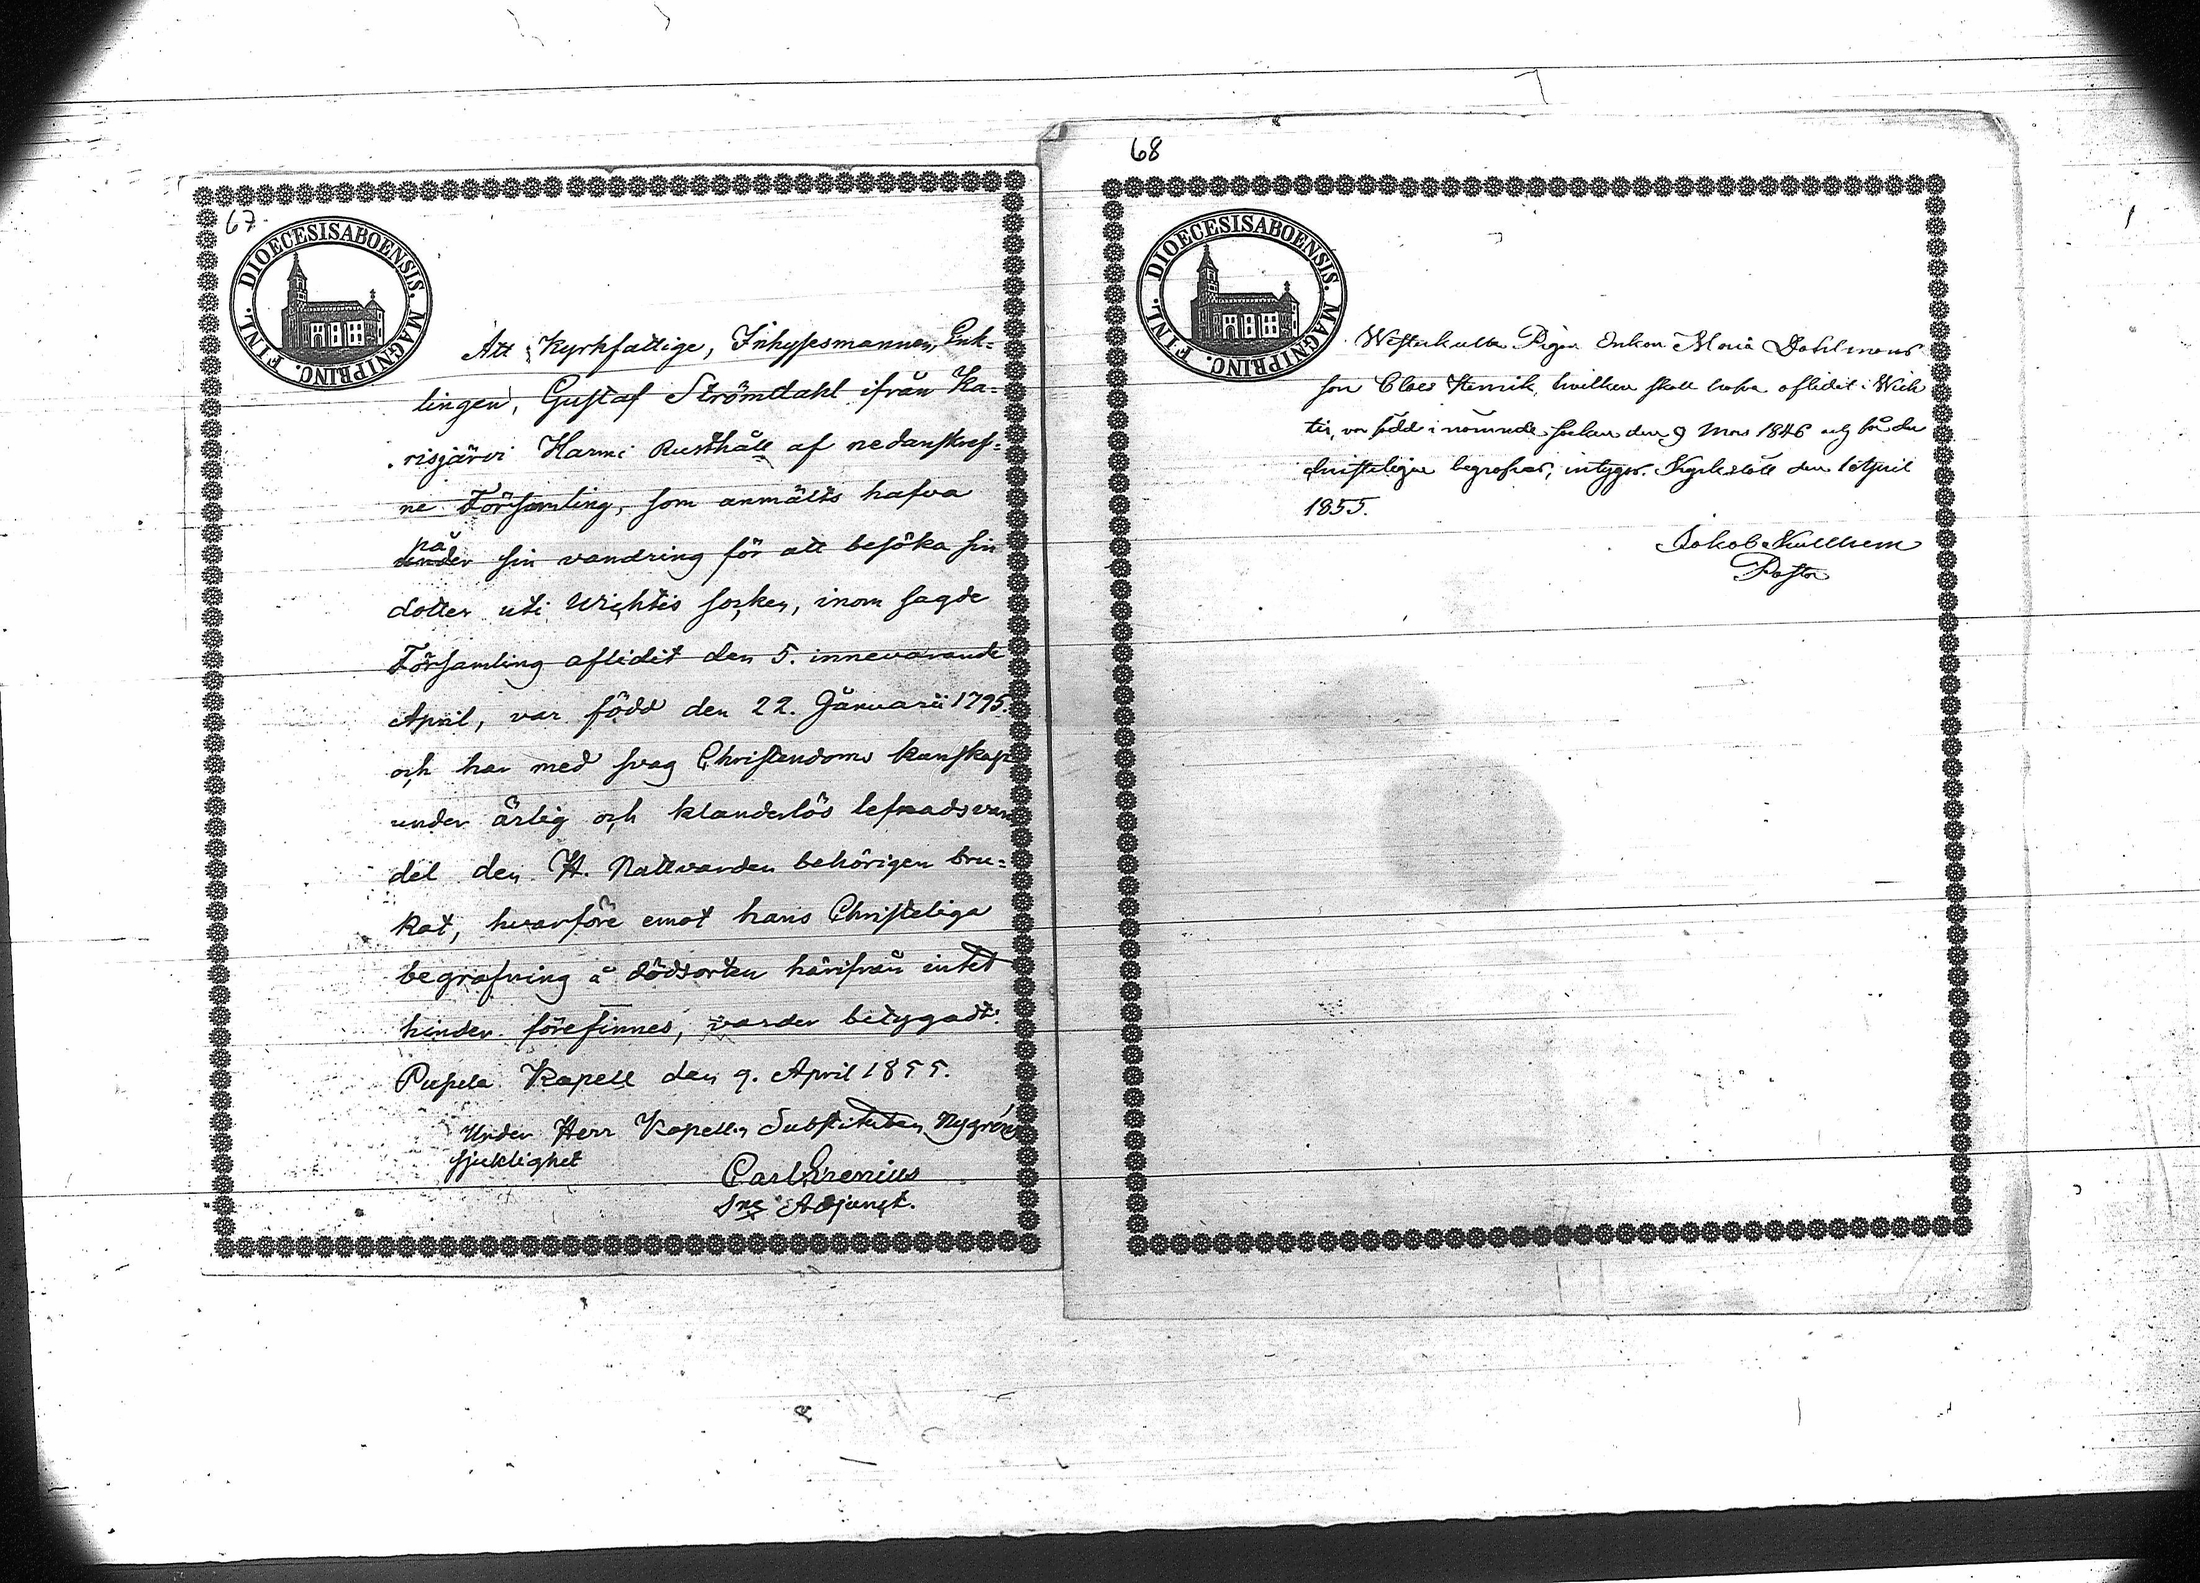 67.
DIOECESISABOENSIS. MAGNIPRINC. FINL.
Att Kyrkfattige, Inhysesmannen, Enk=
lingen, Gustaf Strömdahl ifrån Ka=
risjärvi Harmi Rusthåll af nedanskref=
ne Församling, som anmälts hafva
på
under sin vandring för att besöka sin
dotter uti Wichtis socken, inom sagde
Församling aflidit den 5. innevarande
April, var född den 22. Januarii 1795.
och har med svag Christendoms kunskap
under ärlig och klanderlös lefnadsvan
del den H. Nattvarden behörigen bru=
kat, hvarföre emot hans Christeliga
begrafning å dödsorten härifrån intet
hinder förefinnes, varder betygadt.
Pusula Kapell den 9. April 1855.
Under Herr Kapells Substituten Nygréns
sjuklighet
Carl Grenius
Adjunct.
68
DIOECESISABOENSIS. MAGNIPRINC. FINL.
Westerkulla Enkan Maria Dahlmans
son Claes Henrik, hvilken skall hafva aflidit i Wich
tis, var född i nämnde socken den 9 Mars 1846 och får der
christeligen begrafvas, intygar. Kyrkslätt den April
1855.
Jakob
Pastor